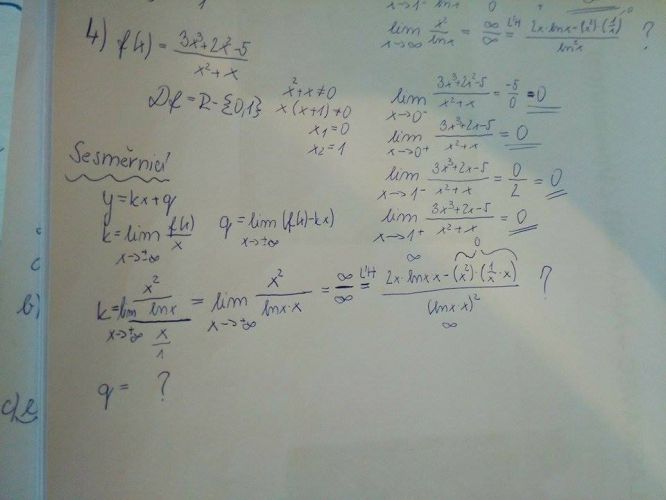 x→1⁻ lnx 0
lim x→∞ x²/lnx = ∞/∞ L'H = 2x·lnx-(x²)·(1/x) / ln²x ?
4) f(x) = 3x³+2x²-5 / x²+x
x²+x≠0
Df = R-{0,1} x(x+1)≠0
x₁=0
x₂=1
lim x→0⁻ 3x³+2x²-5 / x²+x = -5/0 = 0
lim x→0⁺ 3x³+2x-5 / x²+x = 0
lim x→1⁻ 3x³+2x-5 / x²+x = 0/2 = 0
lim x→1⁺ 3x³+2x-5 / x²+x = 0
Se směrnicí
y=kx+q
k=lim x→±∞ f(x)/x q=lim x→±∞ (f(x)-kx)
b)
k=lim x→±∞ x²/lnx / x/1 = lim x→±∞ x²/lnx·x = ∞/∞ L'H = 2x·lnx x-(x²)·(1/x·x) / (lnx x)² ?
∞ 0
∞
q = ?
c)